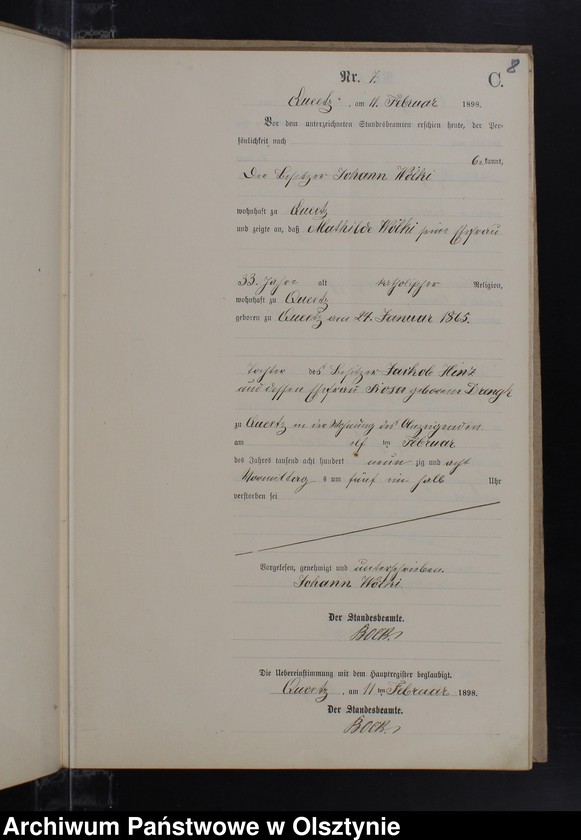 8
Nr. 7. C.
Queetz, am 11. Februar 1898.
Vor dem unterzeichneten Standesbeamten erschien heute, der Per-
sönlichkeit nach
kannt,
Der Besitzer Johann Wölki
wohnhaft zu Queetz
und zeigte an, daß Mathilde Wölki seine Ehefrau
33. Jahre alt katholischer Religion,
wohnhaft zu Queetz
geboren zu Queetz am 27. Januar 1865.
Tochter des Besitzer Jackob Hinz
und dessen Ehefrau Rosa geborene
zu Queetz in der Wohnung des Anzeigenden
am elf ten Februar
des Jahres tausend acht hundert neun zig und acht
Vormittag s um fünf ein halb Uhr
verstorben sei
Vorgelesen, genehmigt und unterschrieben.
Johann Wölki
Der Standesbeamte.
Bock
Die Uebereinstimmung mit dem Hauptregister beglaubigt.
Queetz, am 11 ten Februar 1898.
Der Standesbeamte.
Bock
Archiwum Państwowe w Olsztynie